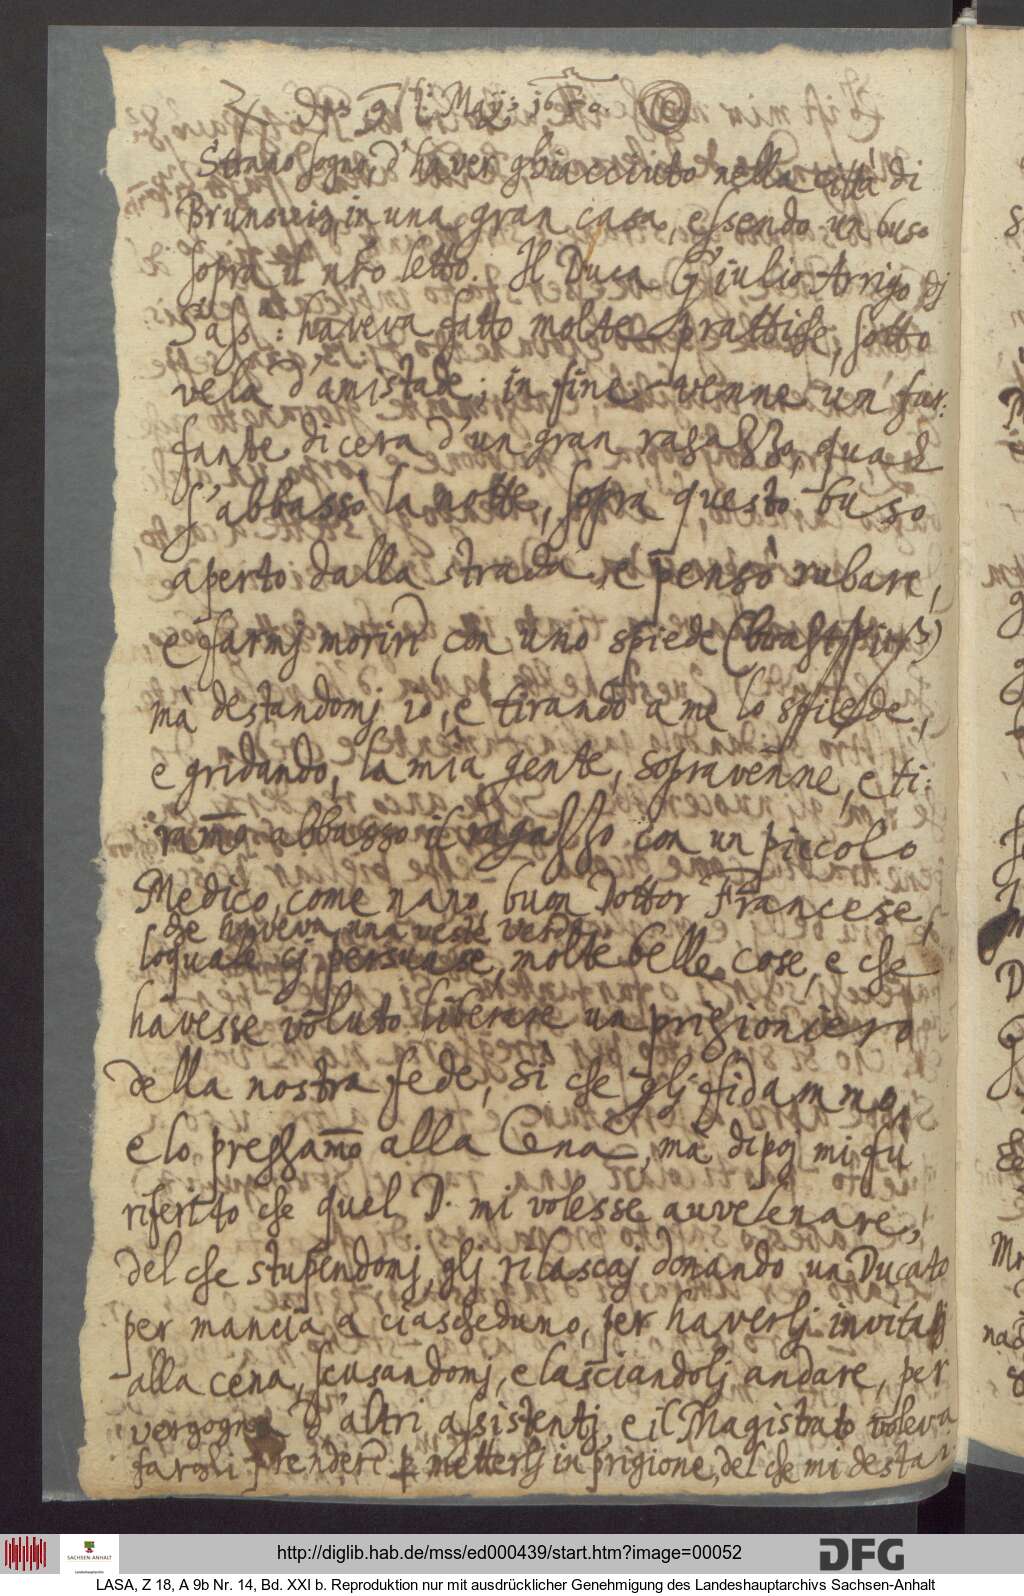 Strano sogno, d'haver ghiacciuto nella città di
Brunsvig, in una gran casa, essendo un buso
sopra il nr̃o letto. Il Duca Giulio Arrigo dj
Sass: haveva fatto molte prattiche, sotto
vela d'amistade; in fine venne un fur:
fante di cera d'un gran ragazzo, qual
s'abbassò la notte, sopra questo buso
aperto dalla strada, e pensò rubare,
e farmj morire con uno spiede
mà destandomj io, e tirando a me lo spiede,
e gridando, la mia gente, sopravenne, e ti:
ram̃o abbasso il ragazzo con un piccolo
Medico, come nano, buon Dottor Francese,
che haveva una veste verde,
loquale cj persuase, molte belle cose, e che
havesse voluto liberare un prigioniero
della nostra fede, si che glj fidammo,
e lo pregam̃o alla Cena, mà dipoj mi fù
riferitto che quel D. mi volesse auvelenare,
del che stupendomj, glj rilascaj donando un Ducato
per mancia a ciascheduno, per haverlj invitatj
alla cena, scusandomj, e lasciandolj andare, per
vergogna d'altri assistentj, e il Magistrato voleva
fargli prendere p metterlj in prigione, del che mi destai.
http://diglib.hab.de/mss/ed000439/start.htm?image=00052
DFG
SACHSEN-ANHALT
LASA, Z 18, A 9b Nr. 14, Bd. XXI b. Reproduktion nur mit ausdrücklicher Genehmigung des Landeshauptarchivs Sachsen-Anhalt